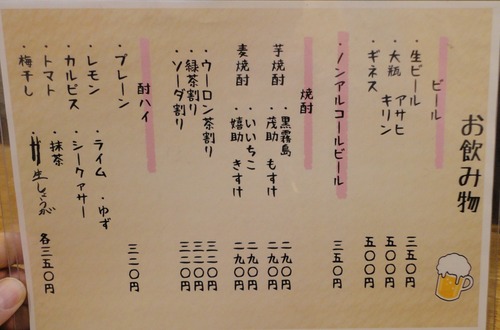 お飲み物
ビール
・生ビール 三五〇円
・大瓶 アサヒ キリン 五〇〇円
・ギネス 五〇〇円
・ノンアルコールビール 三五〇円
焼酎
芋焼酎 ・黒霧島 二九〇円
・茂助 もすけ 二九〇円
麦焼酎 ・いいちこ 二九〇円
・嬉助 きすけ 二九〇円
・ウーロン茶割り 三二〇円
・緑茶割り 三二〇円
・ソーダ割り 三二〇円
酎ハイ
・プレーン 三二〇円
・レモン ・ライム ・ゆず
・カルピス ・シークァサー
・トマト ・抹茶
・梅干し 生しょうが 各三五〇円